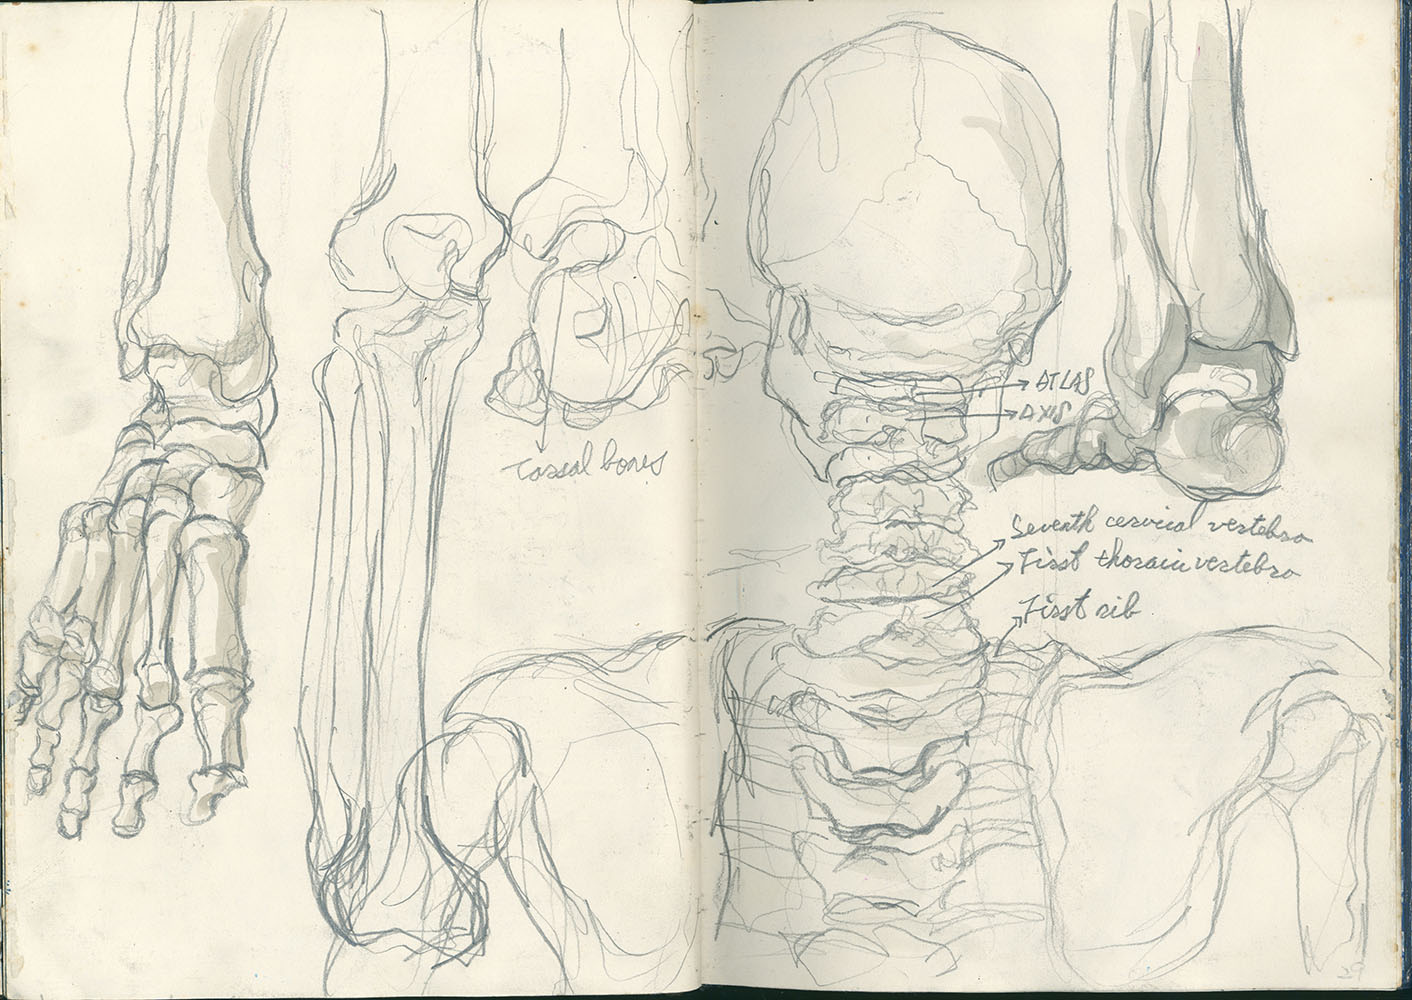 Tarsal bones
ATLAS
AXIS
Seventh cervical vertebra
First thoracic vertebra
First rib
29